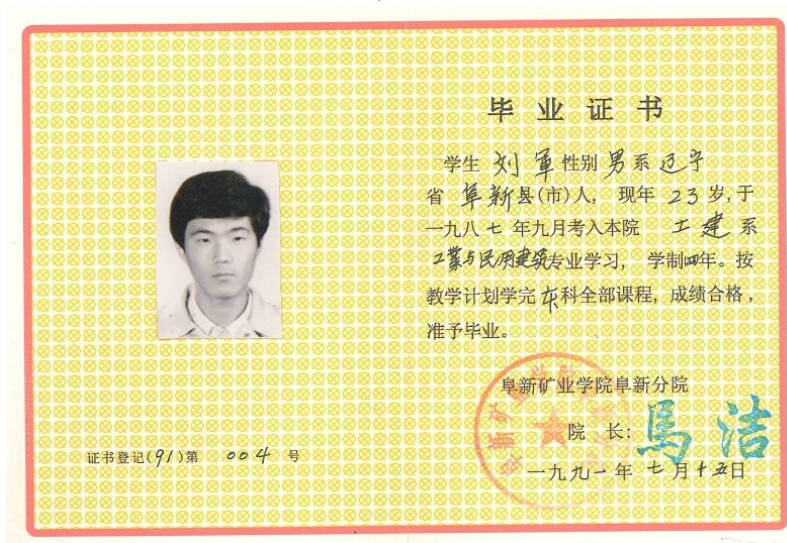 毕业证书
学生 刘军 性别 男 系 辽宁
省 阜新 县(市)人, 现年 23 岁,于
一九八七年九月考入本院 土建 系
工業与民用建筑专业学习, 学制四年。按
教学计划学完本科全部课程,成绩合格,
准予毕业。
阜新矿业学院阜新分院
院 长: 馬洁
一九九一年 七 月 十五 日
证书登记(91)第 004 号